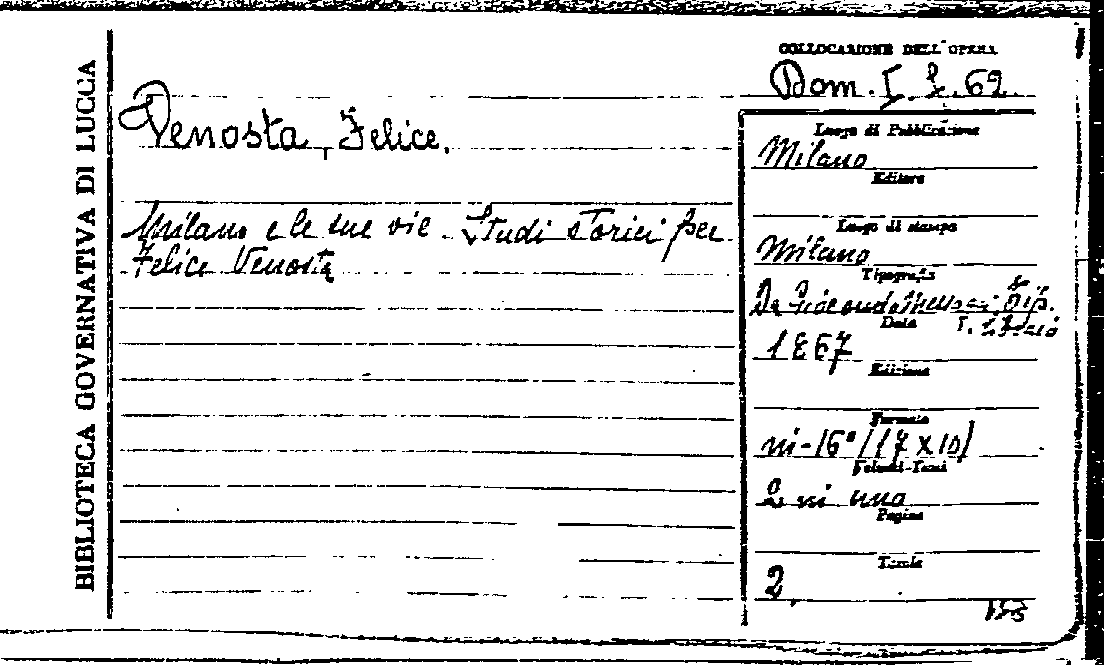 BIBLIOTECA GOVERNATIVA DI LUCCA
COLLOCAZIONE DELL'OPERA
Dom. I. 2. 62.
Venosta, Felice.
Milano e le sue vie. Studi storici per
Felice Venosta
Luogo di Pubblicazione
Milano
Editore
Luogo di stampa
Milano
Tipografia
Da Giacondo Messaggi, Tip.
Data
1867
Edizione
Formato
in-16° (17 x 10)
Volumi-Tomi
2 in uno
Pagine
Tavole
2.